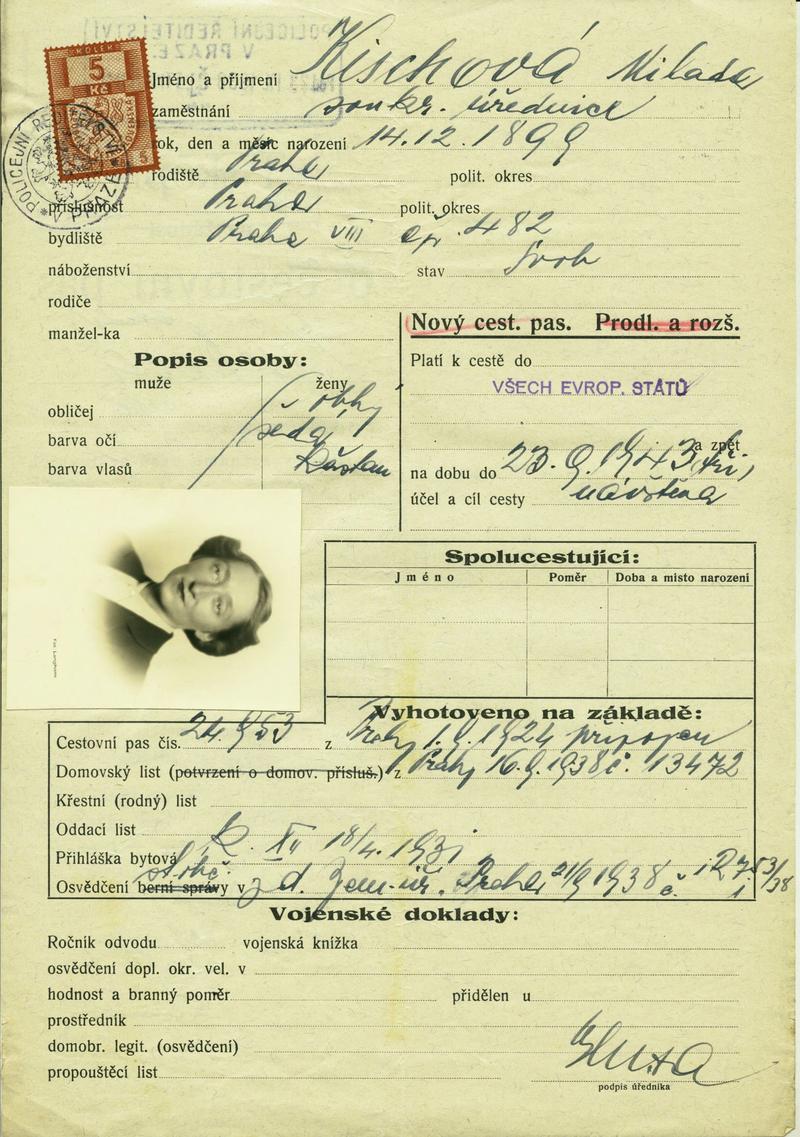 KOLEK
5
Kč
POLICEJNÍ ŘEDITELSTVÍ V PRAZE
Jméno a příjmení Kischová Milada
zaměstnání soukr. úřednice
rok, den a měsíc narození 14.12.1899
rodiště Praha polit. okres
příslušnost Praha polit. okres
bydliště Praha VIII čp. 482
náboženství stav svob
rodiče
manžel-ka
Nový cest. pas. Prodl. a rozš.
Popis osoby:
muže ženy
obličej obly
barva očí šedá
barva vlasů kaštan
Platí k cestě do
VŠECH EVROP. STÁTŮ
a zpět
na dobu do 23.9.1943
účel a cíl cesty návštěva
Fot. Langhans
Spolucestující:
Jméno Poměr Doba a místo narození
Vyhotoveno na základě:
Cestovní pas čís. 24.953 z Prahy 1.9.1924 připojen
Domovský list (potvrzení o domov. přísluš.) z Prahy 16.9.1938 č. 13472
Křestní (rodný) list
Oddací list
Přihláška bytová XII 18/4.1931
Osvědčení berní správy v st. obč. z d. Zem. úř. Praha 21/9 1938 č.
Vojenské doklady:
Ročník odvodu vojenská knížka
osvědčení dopl. okr. vel. v
hodnost a branný poměr přidělen u
prostředník
domobr. legit. (osvědčení)
propouštěcí list
podpis úředníka